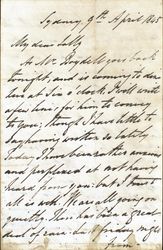 Sydney 9th April 1845
My dear Sally
As Mr Boydell goes back
tonight, and is coming to din
here at Six o'clock I will write
a few lines for him to carry
to you, though I have little to
say having written so lately
today I have been rather anxious
and perplexed at not having
heard from you: but I trust
all is well. We are all going on
quietly. There has been a great
deal of rain. last friday night
from